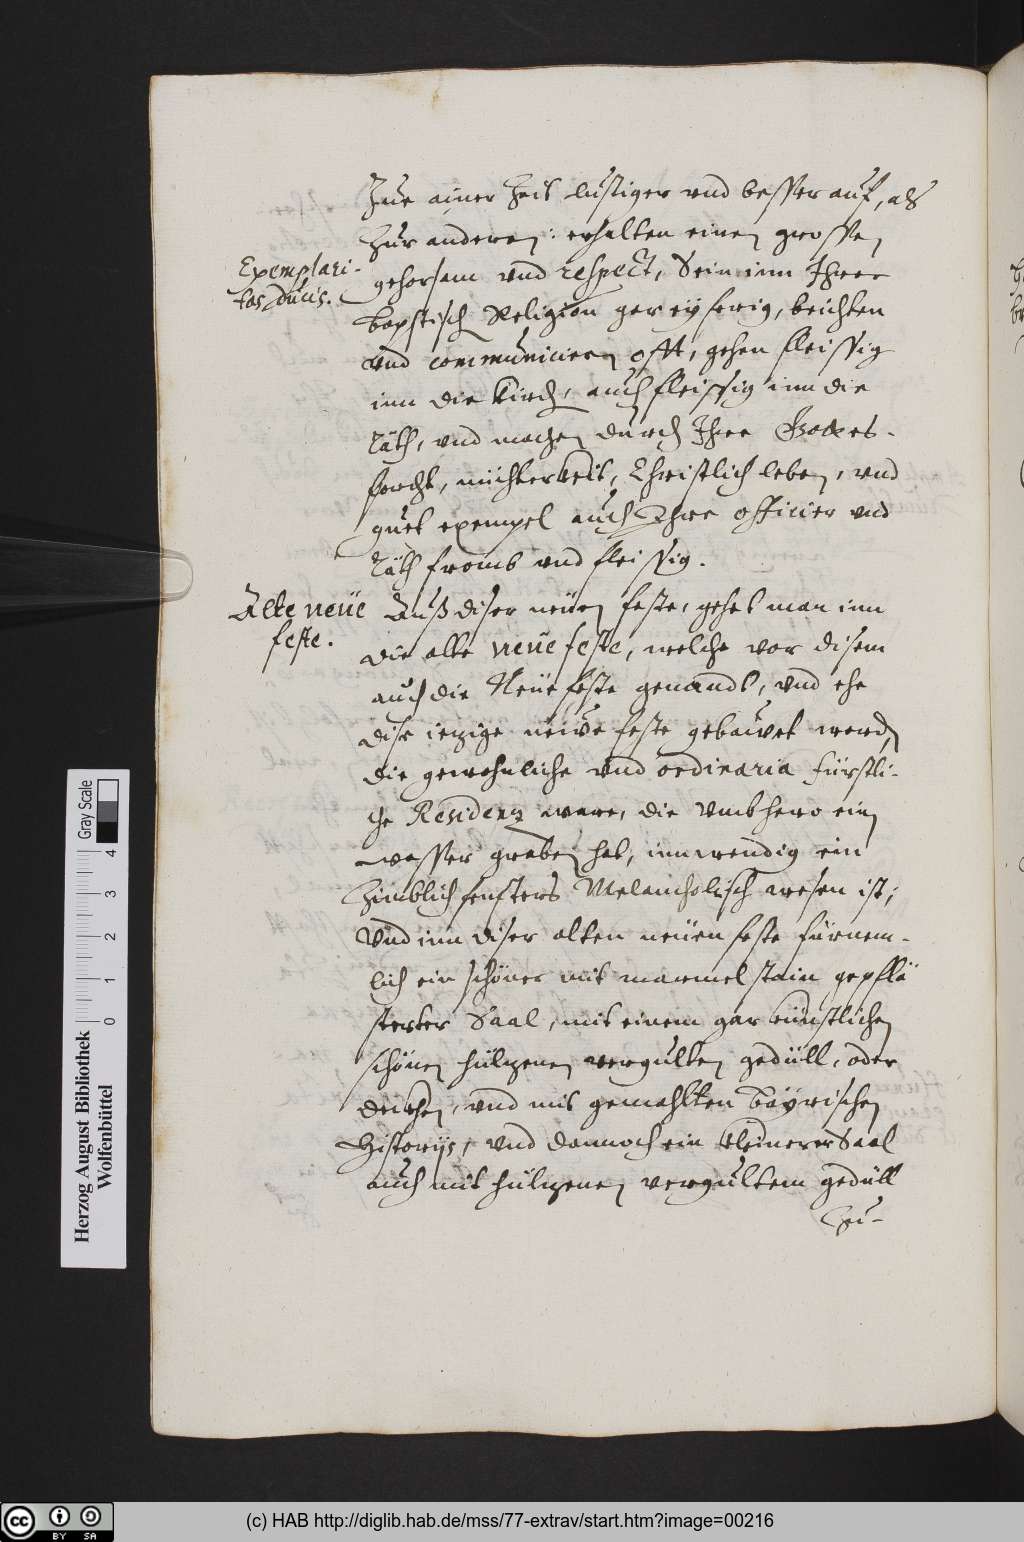 Zue ainer Zeit lustiger vnd besser auf, als
zur anderen: erhalten einen grossen
Exemplari-
tas Ducis.
gehorsam vnd respect, Sein inn Ihrer
bapstisch Religion gar eyferig, beichten
vnd communicieren offt, gehen fleissig
inn die kirch, auch fleissig inn die
Räth, vnd machen durch Ihre Gottes-
forcht, nüchterkeit, Christlich leben, vnd
guet exempel auch Ihre officier vnd
Räth fromb vnd fleissig.
Alte neüe
feste.
Auß diser neüen feste, gehet man inn
die alte neüe feste, welche vor disem
auch die Neüe feste genandt, vnd ehe
dise iezige neüwe feste gebauwet word,
die gewohnliche vnd ordinaria fürstli-
che Residenz ware, die vmbhero ein
wasser graben hat, innwendig ein
zimblich finsters Melancholisch wesen ist;
Vnd inn diser alten neüen feste fürnem-
lich ein schöner mit marmelstain gepflä
sterter Saal, mit einem gar künstlichen
schönen hülzenen vergulten gedüll, oder
deckhen, vnd mit gemahlten bäyrischen
Historijs, vnd dannoch ein kleinerer Saal
auch mit hülzenen vergultem gedüll
Zu-
Gray Scale
0 1 2 3 4
Herzog August Bibliothek
Wolfenbüttel
cc BY SA
(c) HAB http://diglib.hab.de/mss/77-extrav/start.htm?image=00216